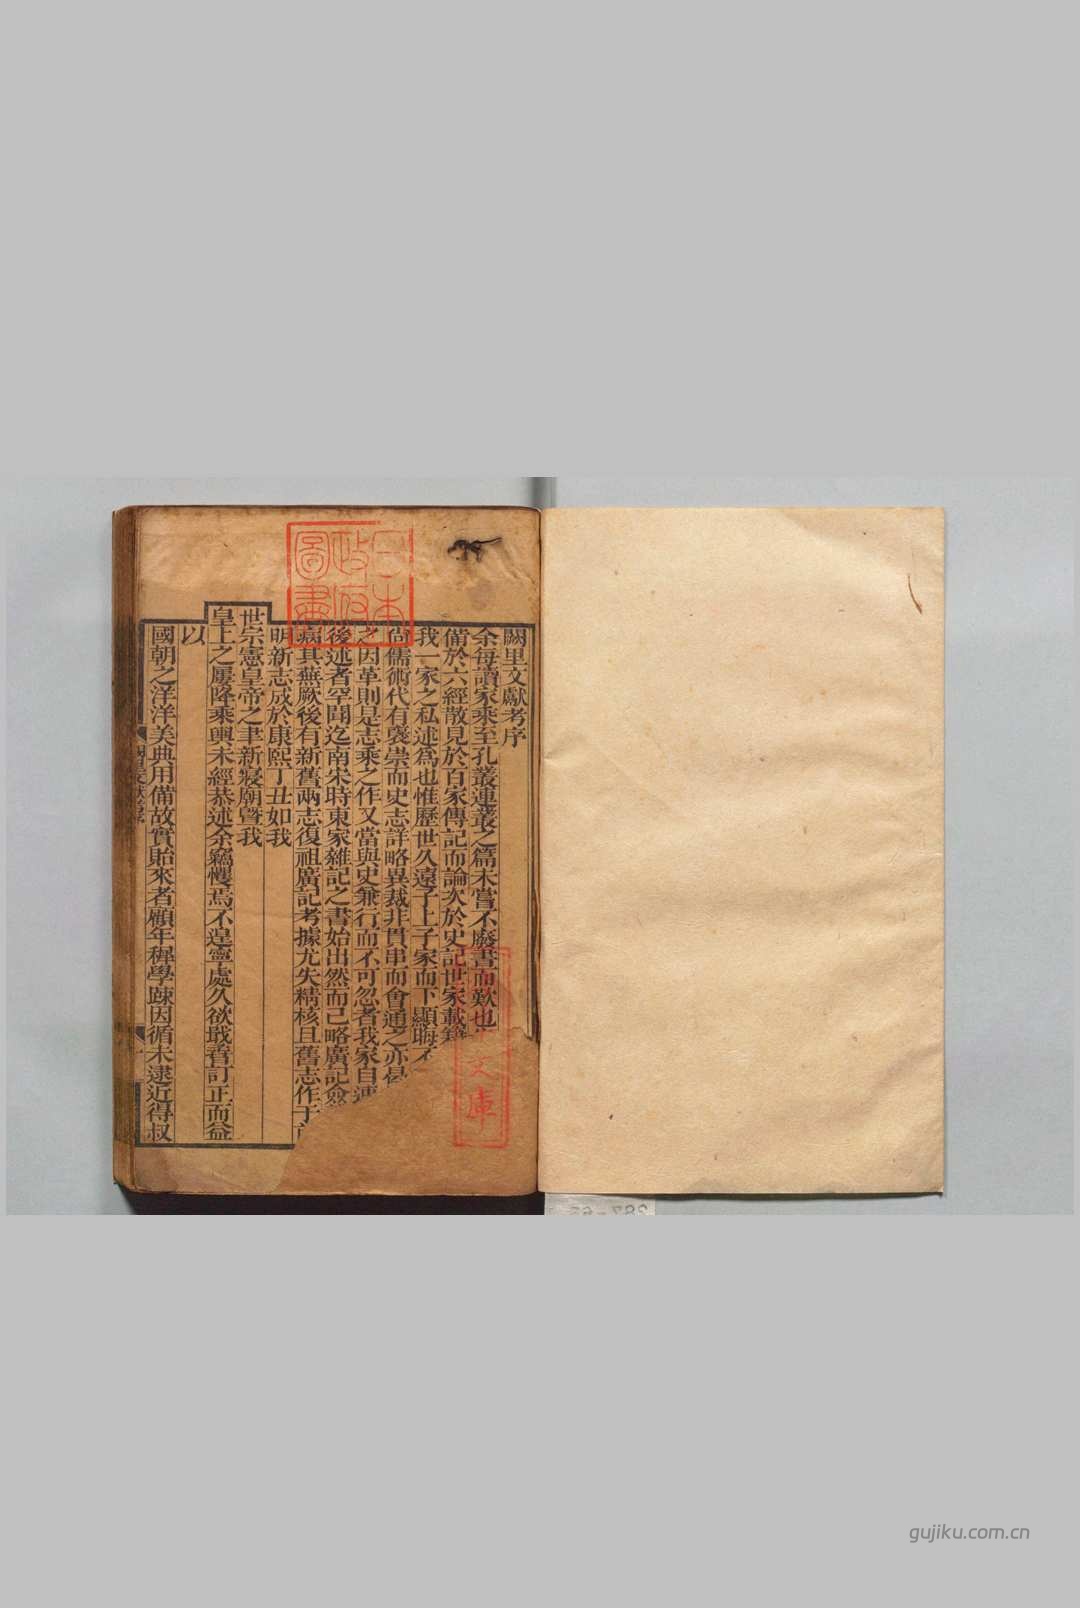 闕里文獻考序
余每讀家乘至孔叢連叢之篇未嘗不廢書而歎也
備於六經散見於百家傳記而論次於史記世家載籍
我一家之私述爲也惟歷世久遠子上子家而下顯晦不
尙儒術代有襃崇而史志詳略異裁非貫串而會通之亦
之因革則是志乘之作又當與史兼行而不可忽者我家自
後述者罕聞迄南宋時東家雜記之書始出然而已略廣記
病其蕪厥後有新舊兩志復祖廣記考據尤失精核且舊志作于
明新志成於康熙丁丑如我
世宗憲皇帝之聿新寢廟曁我
皇上之屢降乘輿未經恭述余竊懼焉不遑寧處久欲戢舂訂正而益
以
國朝之洋洋美典用備故實貽來者顧年穉學踈因循未逮近得叔
日本
政府
圖書
文庫
gujiku.com.cn